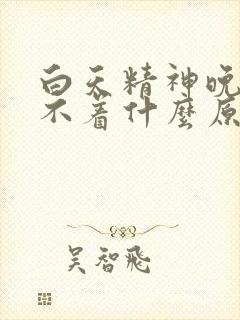 白天精神晚
不着什麼原
吴智飛